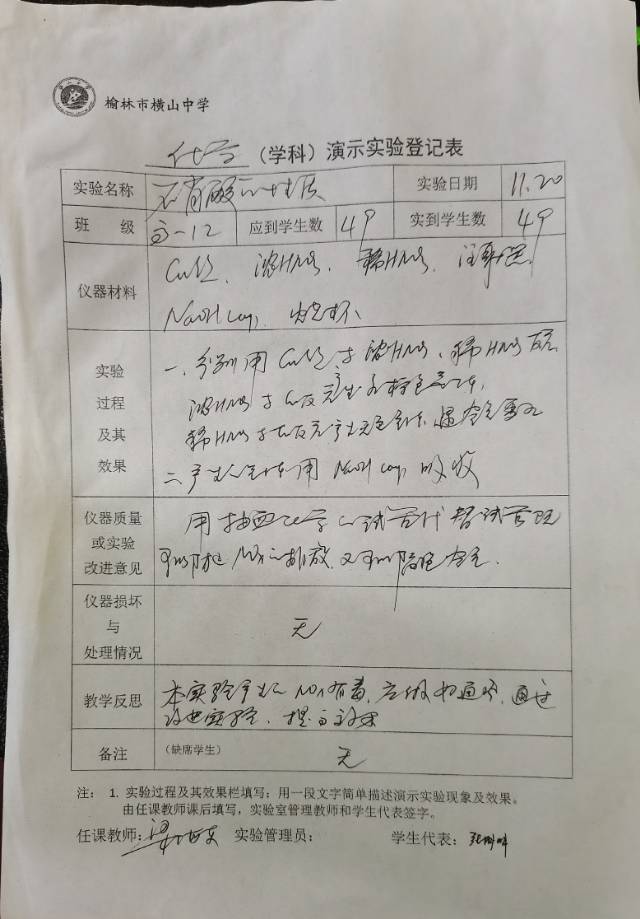 榆林市横山中学
化学 (学科) 演示实验登记表
实验名称 硝酸的性质 实验日期 11.20
班 级 高一12 应到学生数 49 实到学生数 49
仪器材料 Cu丝、浓HNO3、稀HNO3、注射器、
NaOH(aq)、烧杯
实验
过程
及其
效果
一、分别用Cu丝与浓HNO3、稀HNO3反应
浓HNO3与Cu反应产生红棕色气体,
稀HNO3与Cu反应产生无色气体,遇空气变红
二、产生气体用NaOH(aq)吸收
仪器质量
或实验
改进意见
用 的试管代替试管既
可防止NOx的排放,又可 空气.
仪器损坏
与
处理情况
无
教学反思 本实验产生NOx有毒,应做好通风,通过
实验,提高效果
备注 (缺席学生) 无
注: 1. 实验过程及其效果栏填写:用一段文字简单描述演示实验现象及效果。
由任课教师课后填写,实验室管理教师和学生代表签字。
任课教师: 实验管理员: 学生代表: